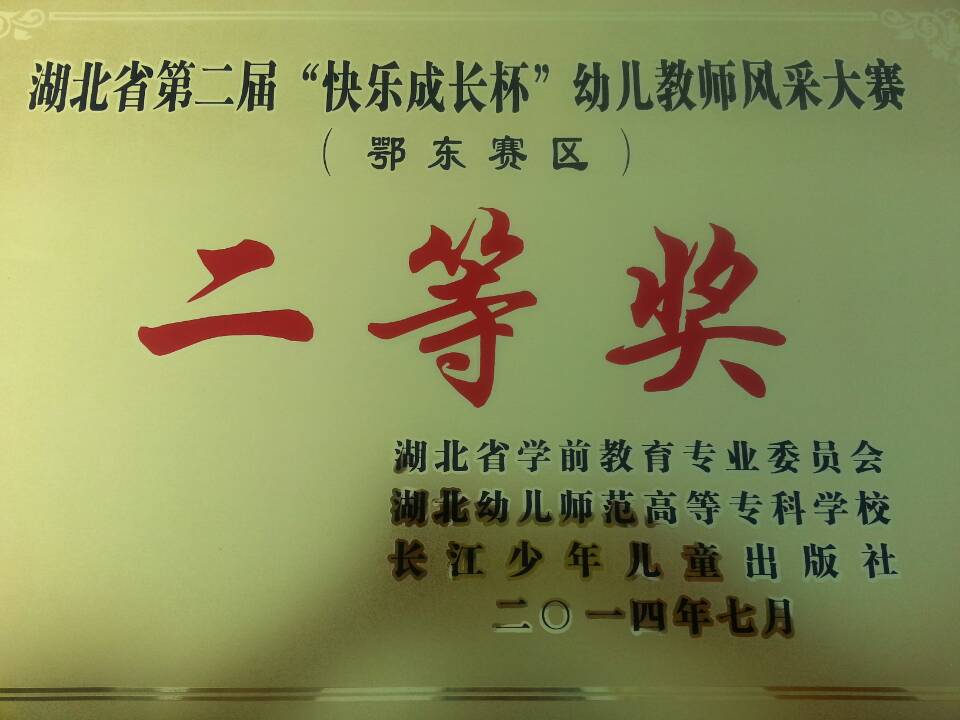 湖北省第二届“快乐成长杯”幼儿教师风采大赛
（鄂东赛区）
二等奖
湖北省学前教育专业委员会
湖北幼儿师范高等专科学校
长江少年儿童出版社
二〇一四年七月